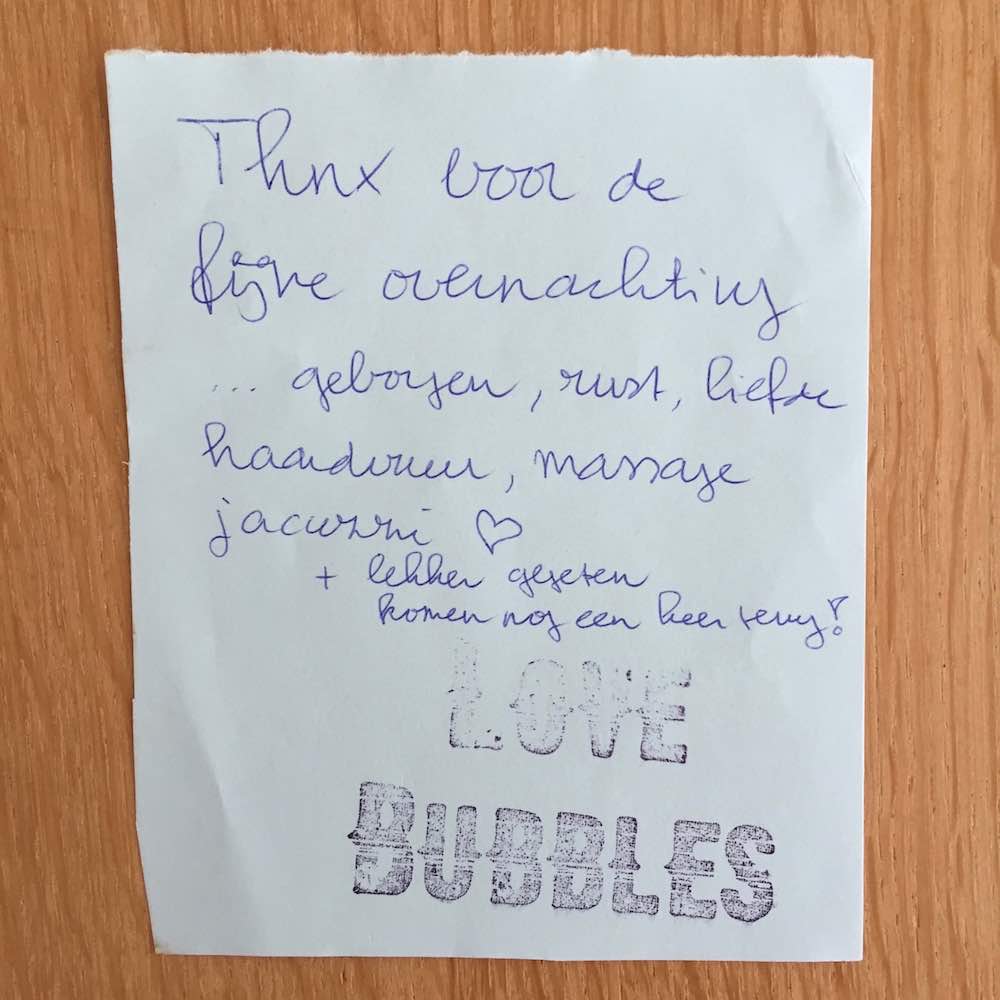 Thnx voor de
fijne overnachting
... geborgen, rust, liefde
haardvuur, massage
jacuzzi ♡
+ lekker gegeten
komen nog een keer terug!
LOVE
BUBBLES